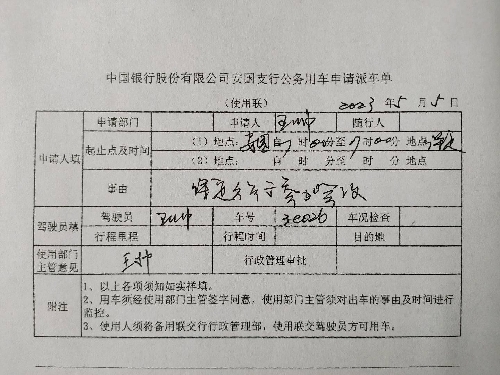 中国银行股份有限公司安国支行公务用车申请派车单
（使用联） 2023 年 5 月 5 日
申请人填 申请部门 申请人 随行人
起止点及时间 （1）地点： 安国 自 7 时 00 分至 17 时 00 分 地点：
（2）地点： 自 时 分至 时 分 地点：
事由 保定分行
驾驶员填 驾驶员 车号 车况检查
行程里程 行程时间 目的地
使用部门主管意见 行政管理审批
附注 1、以上各项须知如实样填。
2、用车须经使用部门主管签字同意，使用部门主管须对出车的事由及时间进行
监控。
3、使用人须将备用联交行政管理部，使用联交驾驶员方可用车。